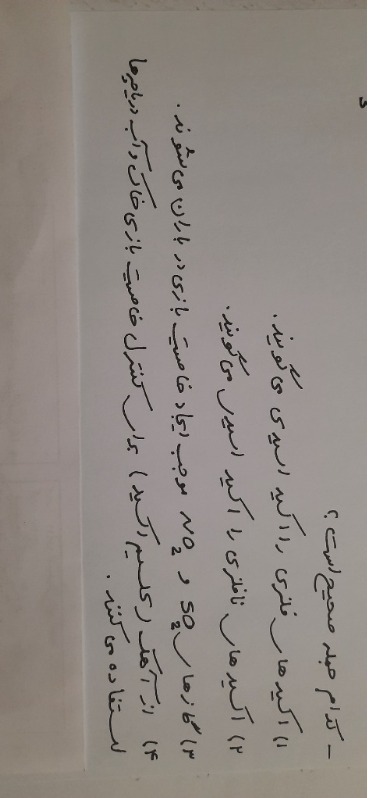 - کدام جمله صحیح است؟
۱) اکسیدهای فلزی را اکسید اسیدی می گویند.
۲) اکسیدهای نافلزی را اکسید اسیدی می گویند.
۳) گازهای SO2 و NO2 موجب ایجاد خاصیت بازی در باران می شوند.
۴) از آهک (کلسیم اکسید) برای کنترل خاصیت بازی خاک و آب دریاچه ها
استفاده می کنند.